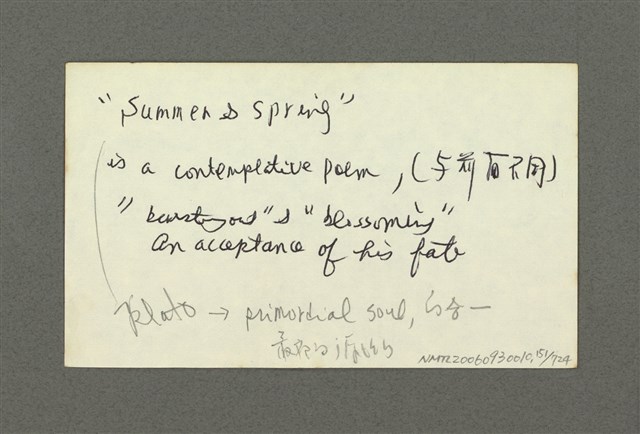 "Summer & Spring"
is a contemplative poem, (与前面不同)
" & "blossoming"
An acceptance of his fate
Plato → primordial soul, 的合一
最
NMTL20060930010,151/724